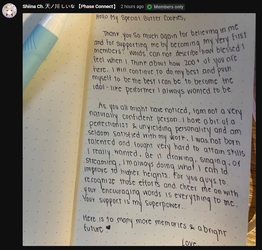 Shiina Ch. 天ノ川 しいな【Phase Connect】 2 hours ago Members only
Hello My Special Butter Cookies,
Thank you so much again for believing in me
and for supporting me by becoming my very first
members! Words can not describe how blessed I
feel when I think about how 200+ of you are
here. I will continue to do my best and push
myself to be the best I can be to become the
idol-like performer I always wanted to be.
As you all might have noticed, I am not a very
naturally confident person. I have a bit of a
perfectionist & unyielding personality and am
seldom satisfied with my work. I was not born
talented and fought very hard to attain skills
I really wanted. Be it drawing, singing, or
streaming, I'm always doing what I can to
improve to higher heights. For you guys to
recognize those efforts and cheer me on with
your encouraging words is everything to me.
Your support is my superpower.
Here is to many more memories & a bright
future ♥
Love